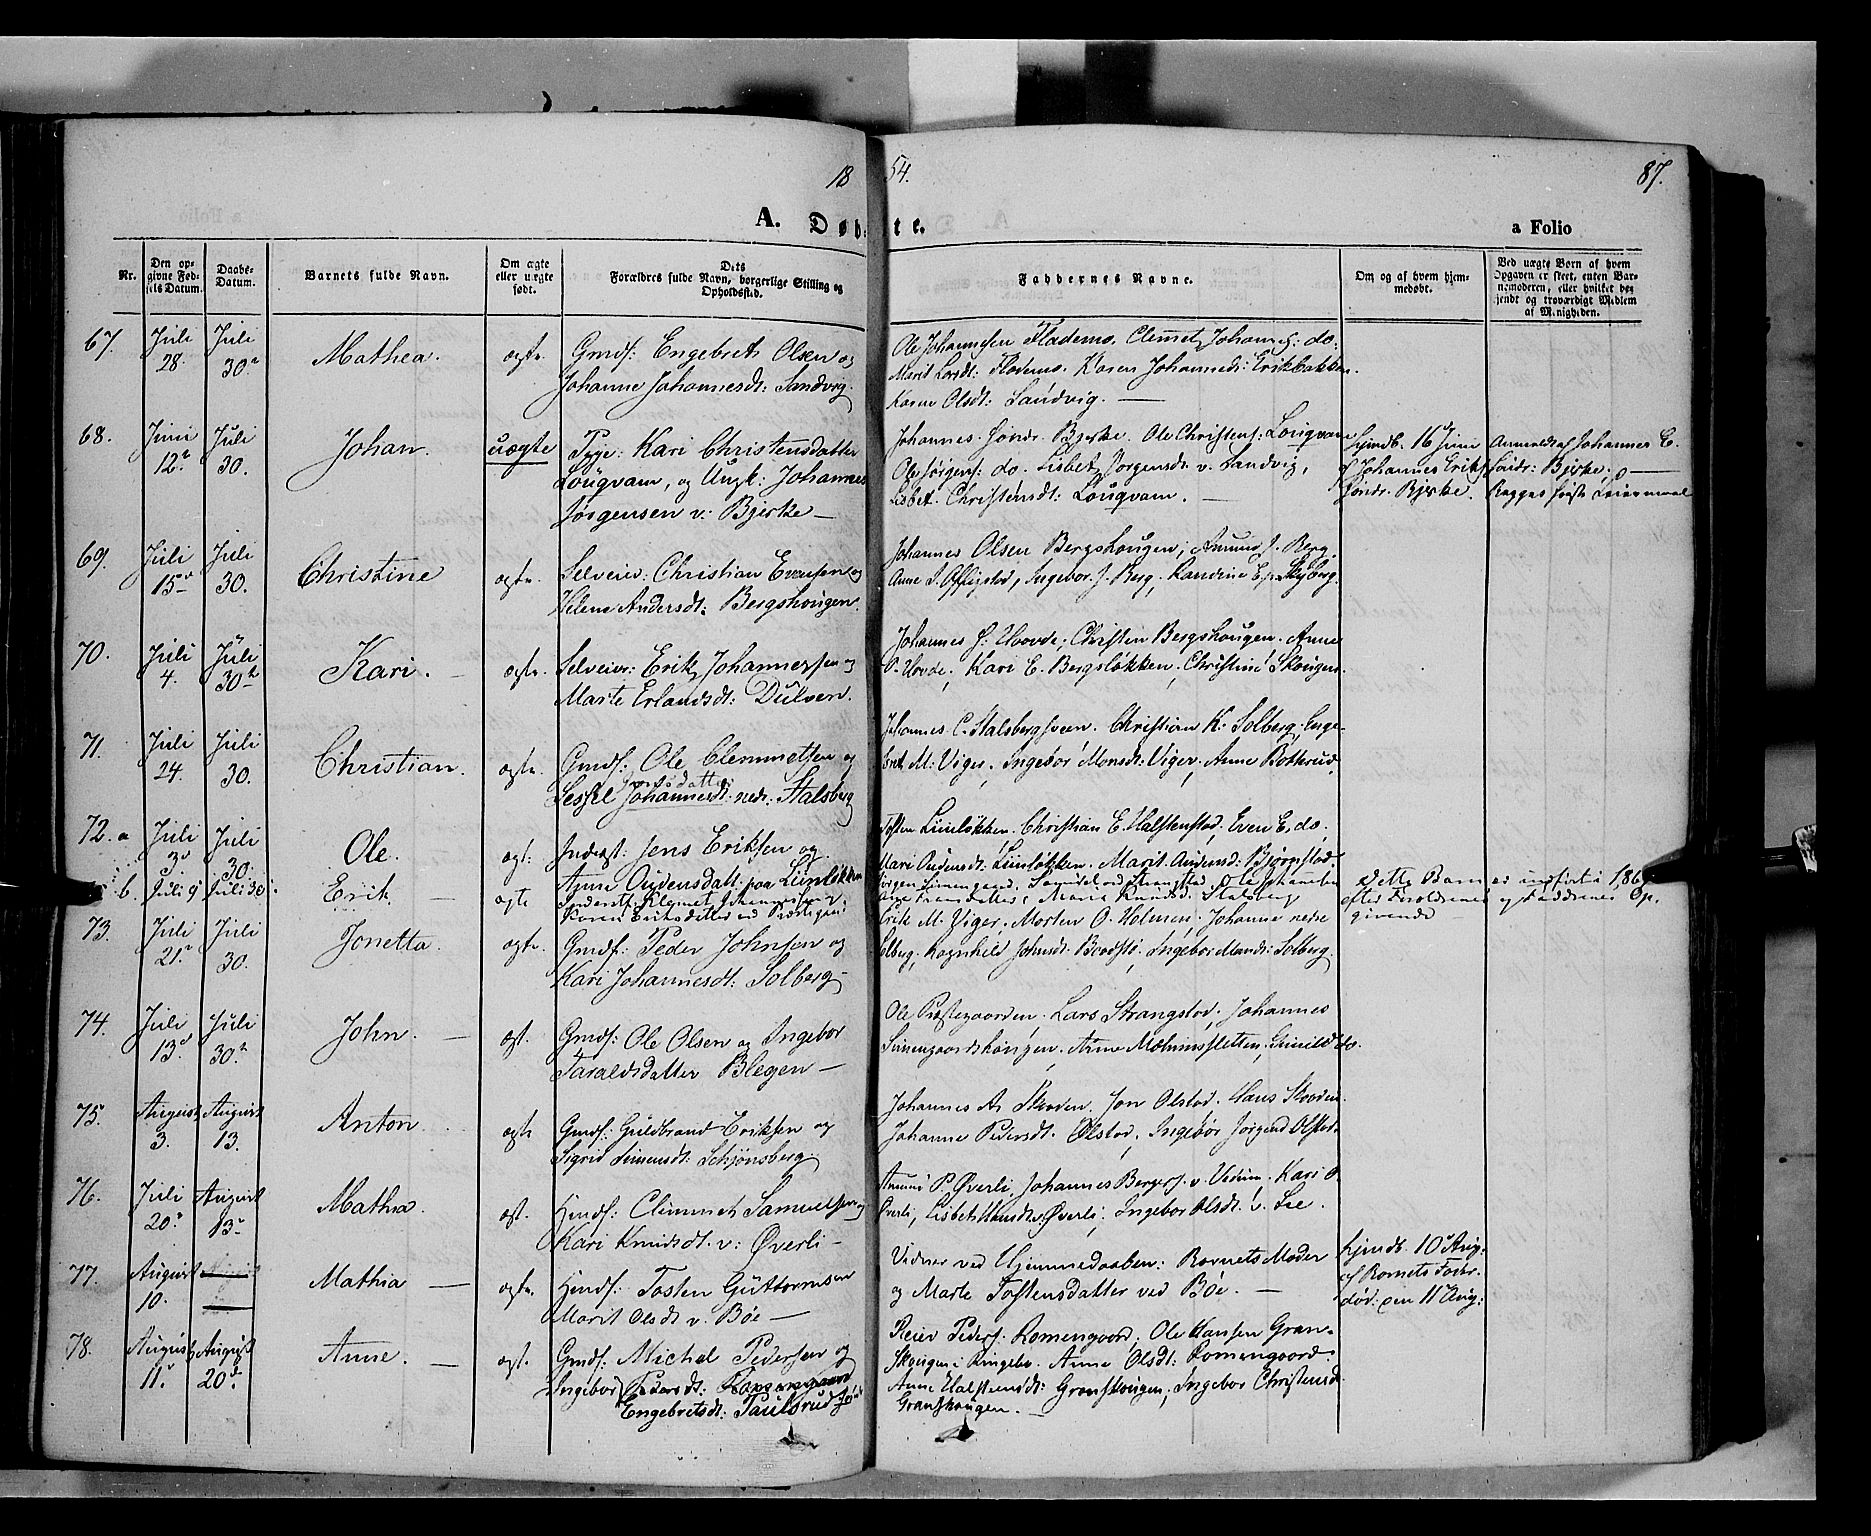 1854.
87.
A. Døbte.
a Folio
Nr.
Den opgivne Fødsels Datum.
Daabs-Datum.
Barnets fulde Navn.
Om ægte eller uægte født.
Dets Forældres fulde Navn, borgerlige Stilling og Opholdssted.
Faddernes Navne.
Om og af hvem hjemmedøbt.
Ved uægte Børn af hvem Opgaven er skeet, enten Barnemoderen, eller hvilket bekjendt og troværdigt Medlem af Menigheden.
67. Juli 28. Juli 30. Mathea. ægte. Gmdf: Engebret Olsen og
Johanne Johannesdt: Sandvig.
Ole Johannesen Flademo. Clemet Johannes: do.
Marit Larsdt: Flademo. Karen Johannesdt: Erikbakken.
Karen Olsdt: Sandvig. —
68. Juni 12. Juli 30. Johan. uægte Pige: Kari Christensdatter
Lougvam, og Ungk: Johannes
Jørgensen v: Bjerke —
Johannes Søndr. Bjerke. Ole Christens: Lougvam
Ole Jørgens: do. Lisbet Jørgensdt: v. Sandvig,
Lisbet Christensdt: Lougvam. —
hjmdb. 16 Juni
af Johannes Eriks
Søndr. Bjerke.
Anmeldt af Johannes E.
Søndr: Bjerke. —
Begges første Leiermaal
69. Juli 15 Juli 30. Christine ægte. Selveier: Christian Evensen og
Helene Andersdt: Bergshougen.
Johannes Olsen Bergshougen, Amund J. Berg.
Anne Offigstad, Ingebor J. Berg, Randine Skyberg.
70. Juli 4. Juli 30 Kari. — ægte. Selveier: Erik Johannessen og
Marte Erlandsdt: Dulven.
Johannes J: Hovde, Christen Bergshougen. Anne
O. Hovde, Kari E. Bergsløkken, Christine Skougen.
71. Juli 24. Juli 30. Christian. ægte. Gmdf: Ole Clemmetsen og
Sessel Johannesdt: nedr: Stalsberg
Johannes C. Stalsbergsveen. Christian K: Solberg, Enge-
bret M: Viger, Ingebor Monsdt: Viger, Anne Botterud,
72. a Juli 3 Juli 30. Ole. ægt: Inderst: Jens Eriksen og
Anne Oudensdatt: paa Linløkken
Tosten Linløkken. Christian E. Halstenstad, Even E. do.
Mari Oudensdt: Linløkken. Marit Bjørnstad
b. Juli 9 Juli 30. Erik — ægte Inderst: Klemet Johannessen og
Karen Eriksdatter
dette Barn er indført i
efter Forældrenes og Faddrenes Op-
givende
73. Juli 21. Juli 30. Jonetta. ægte. Gmdf: Peder Johnsen og
Kari Johannesdt: Solberg —
Erik M. Viger. Morten O. Holmen, Johanne nedre
Solberg, Ragnhild Johnsdt: Ingebor Solberg.
74. Juli 13. Juli 30. John. — ægt. Gmdf: Ole Olsen og Ingebor
Taraldsdatter Blegen —
Ole Præstegaarden. Lars Strangstad, Johannes
Simengaardshougen. Anne do.
75. August 3. August 13. Anton. ægte Gmdf: Guldbrand Eriksen og
Sigrid Simensdt: Schjønsberg.
Johannes A. Skoden. Jon Olstad. Hans Skoden.
Johanne Pedersdt. Olstad, Ingebor Olstad.
76. Juli 20. August 13. Mathea. ægt. Hmdf: Climmet Samuelsen og
Kari Knudsdt. v: Øverli —
Amund P. Øverli, Johannes v. Kari O.
Øverli, Lisbet Øverli, Ingebor Olsdt: v. Lie.
77. August 10. Mathia — ægte. Hmdf: Tosten Guttormsen
Marit Olsdt v. Bøe —
Vidner ved Hjemmedaaben: Barnets Moder
og Marte Tostensdatter ved Bøe. —
hjmdb. 10 Aug.
af Barnets Fader.
død: den 11 Aug:
78. August 11. August 20. Anne. — ægt. Gmdf: Michel Pedersen og
Ingebor Pedersdt: Romengaard
Engebretsdt: Paulsrud
Reier Peders. Romengaard, Ole Hansen Gran-
skougen i Ringebo. Anne Olsdt: Romengaard.
Anne Halstensdt: Granskougen, Ingebor Christensd.
Granskougen. —